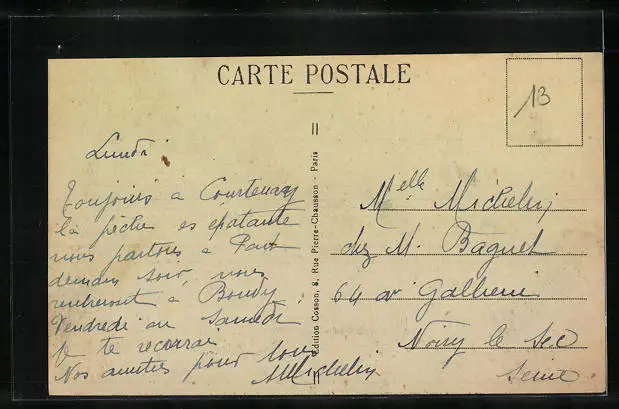 CARTE POSTALE
13
Lundi
Toujours a Courtenay
la pêche es epatante
nous partons a
demain soir, nous
rentreront a Bondy
Vendredi ou Samedi
Je te recevrai
Nos amities pour tous
Michelin
Edition Cosson, 8, Rue Pierre-Chausson - Paris
Melle Michelin
chez M. Baguet
64 av Gallieni
Noisy le Sec
Seine